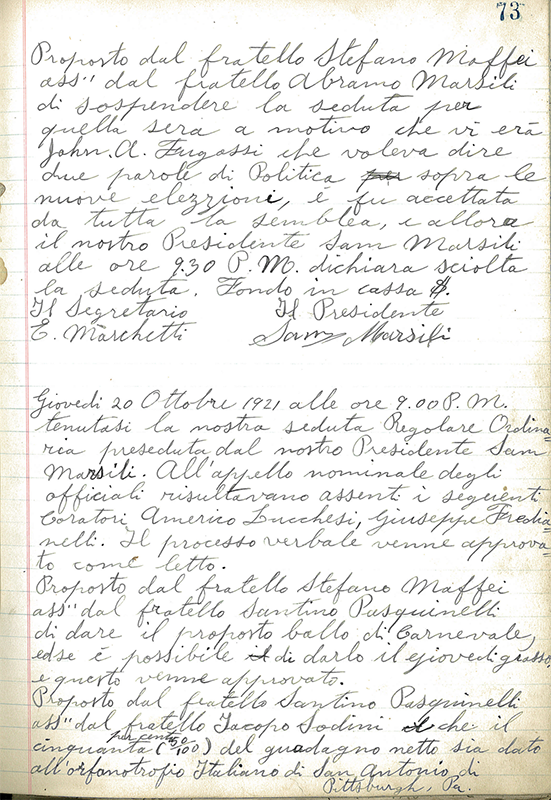 73
Proposto dal fratello Stefano Maffei
ass" dal fratello Abramo Marsili
di sospendere la seduta per
quella sera a motivo che vi era
John. A. Fugassi che voleva dire
due parole di Politica sopra le
nuove elezzioni, é fu accettata
da tutta la semblea, e allora
il nostro Presidente Sam Marsili
alle ore 9.30 P.M. dichiara sciolta
la seduta. Fondo in cassa $.
Il Segretario Il Presidente
E. Marchetti Sam Marsili
Giovedi 20 Ottobre 1921 alle ore 9.00 P.M.
tenutasi la nostra seduta Regolare Ordina=
ria preseduta dal nostro Presidente Sam
Marsili. All'appello nominale degli
officiali risultavano assenti i seguenti
Coratori Americo Lucchesi, Giuseppe Fredia=
nelli. Il processo verbale venne approva=
to come letto.
Proposto dal fratello Stefano Maffei
ass" dal fratello Santino Pasquinelli
di dare il proposto ballo di Carnevale,
edse é possibile di darlo il giovedi grasso,
e questo venne approvato.
Proposto dal fratello Santino Pasquinelli
ass" dal fratello Iacopo Sodini che il
cinquanta per cento (50/100) del guadagno netto sia dato
all'orfanotrofio Italiano di San Antonio di
Pittsburgh, Pa.